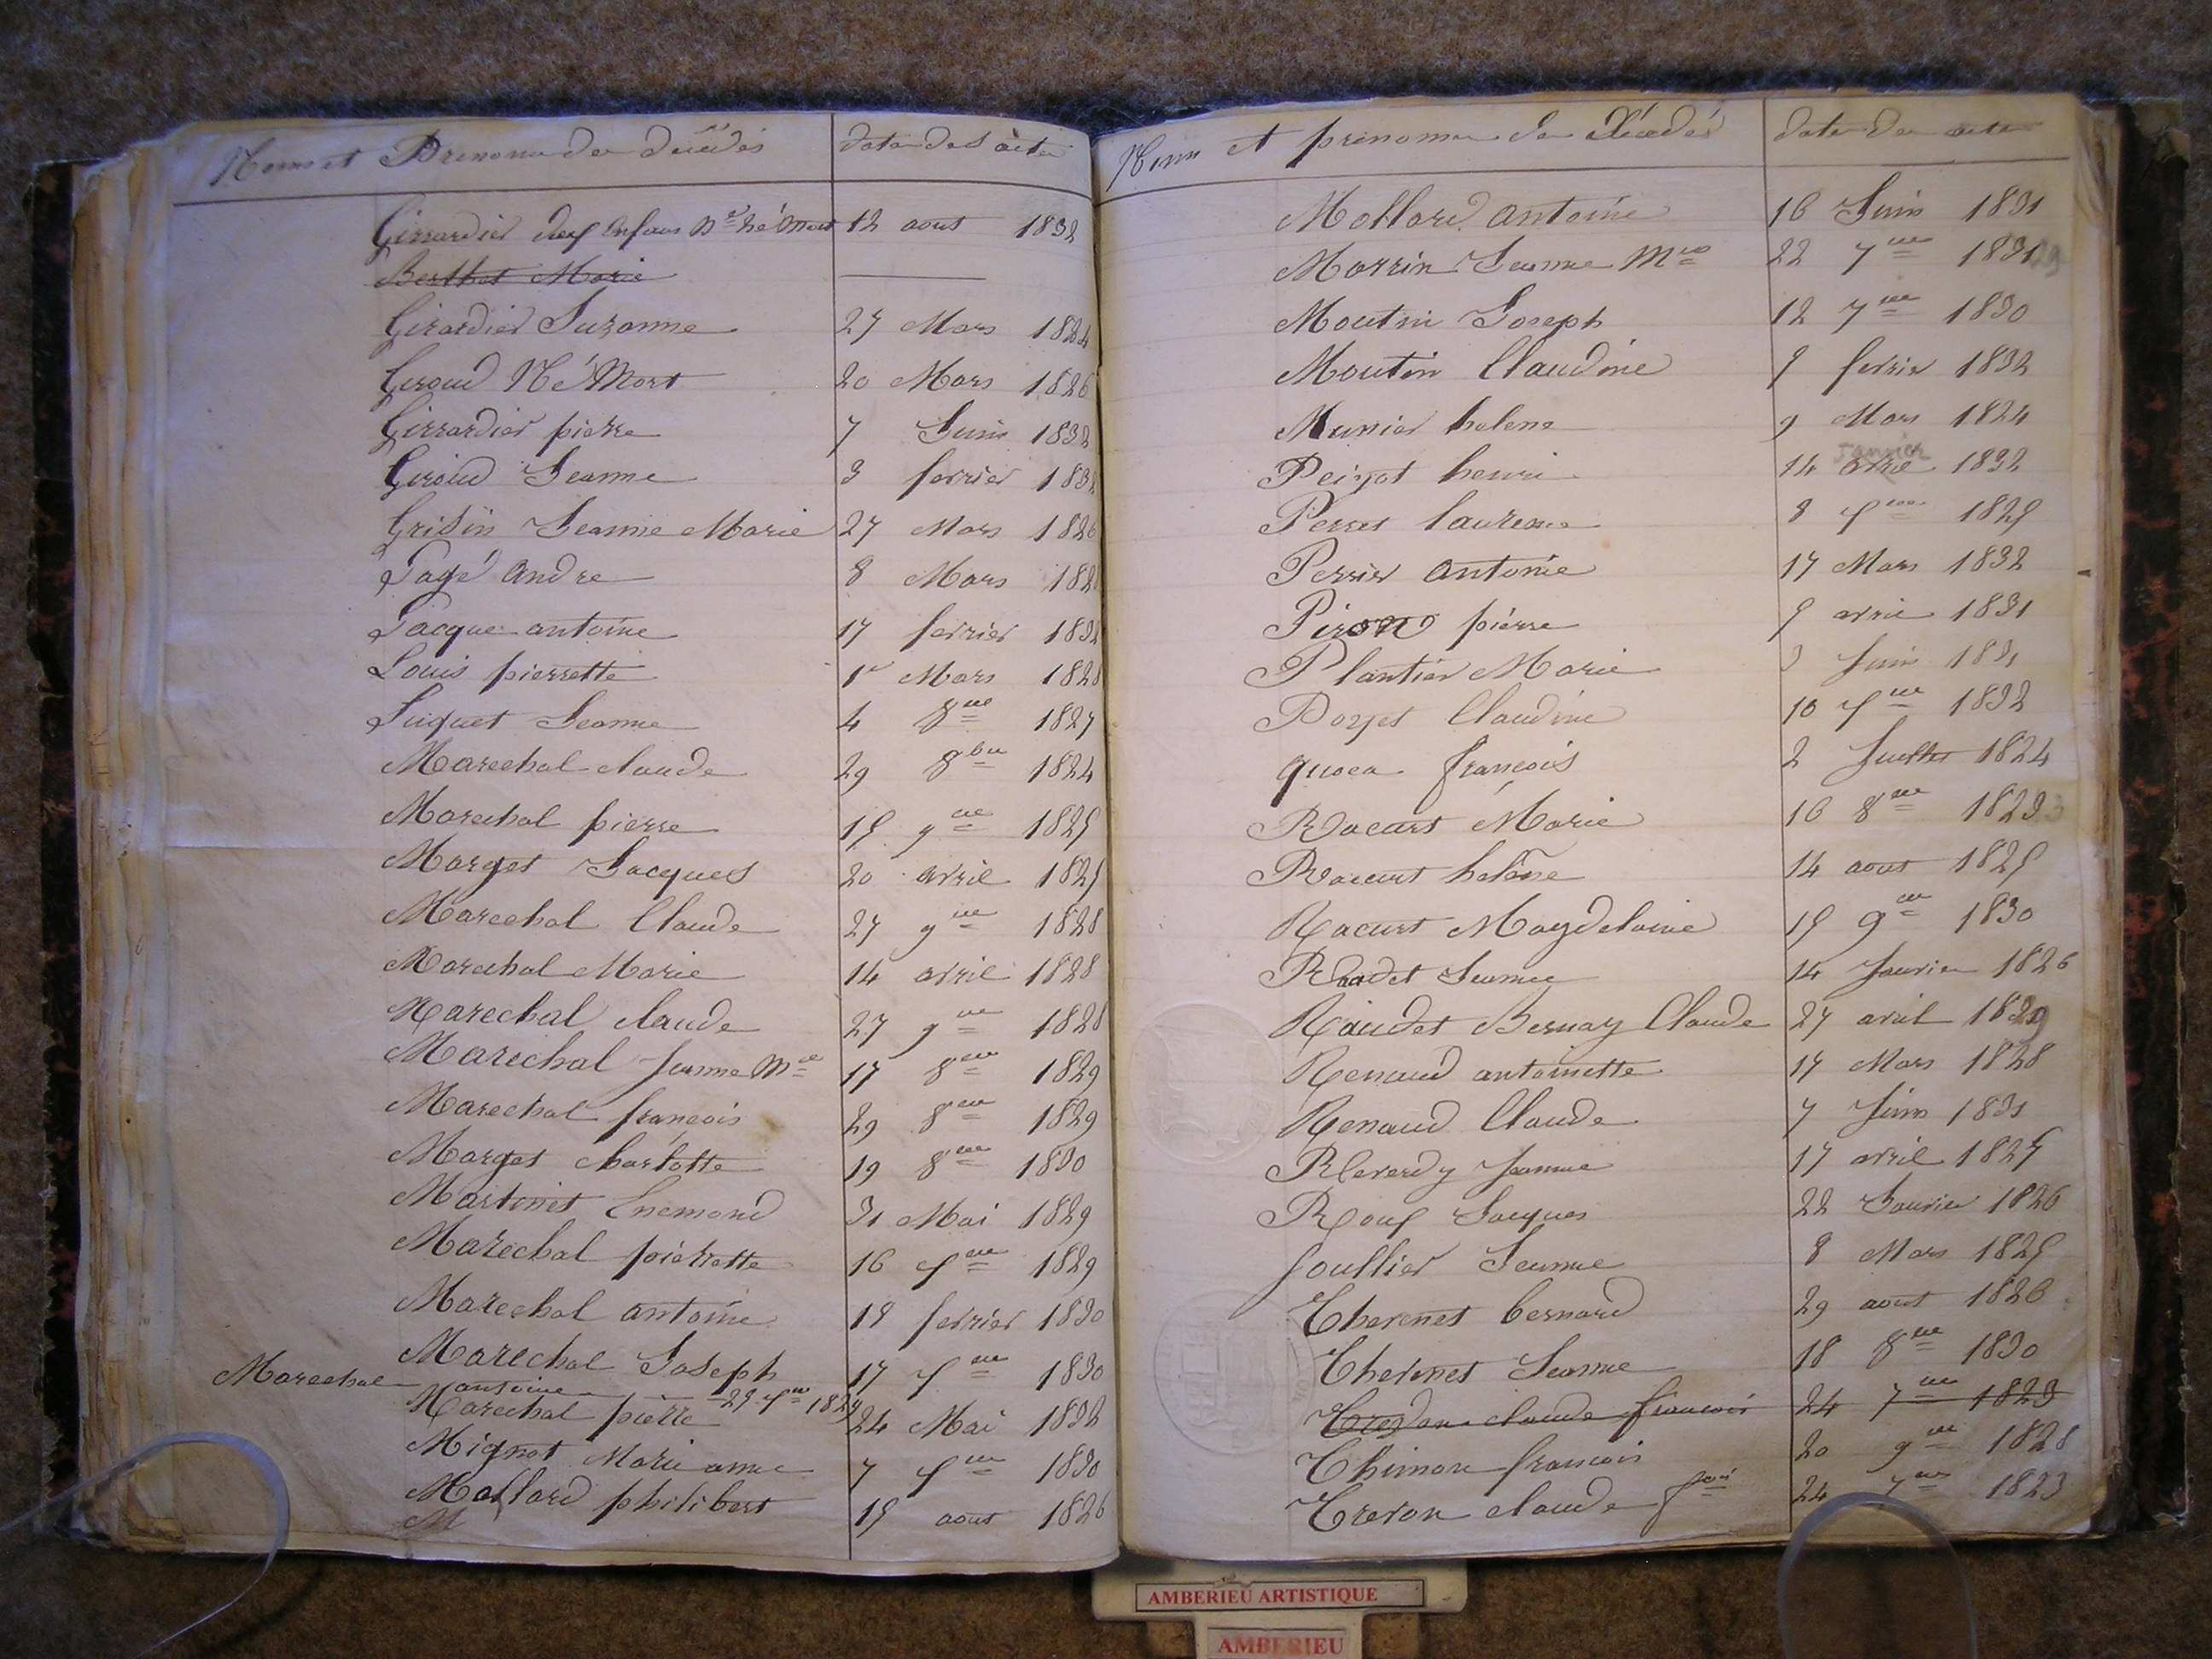 Noms et Prenoms des décédés date des actes
Girrardier deux enfans né mort 12 aout 1832
Berthet Marie
Girardier Suzanne 27 Mars 1824
Geroud Né Mort 20 Mars 1826
Girrardier pierre 7 Juin 1832
Giroud Jeanne 3 fevrier 1832
Grisin Jeanne Marie 27 Mars 1826
Jagé andre 8 Mars
Jacque antoine 17 fevrier
Louis pierrette 1r Mars 1828
Luquet Jeanne 4 8bre 1827
Marechal claude 29 8bre 1824
Marechal pierre 15 9bre 1825
Marget Jacques 20 avril 1825
Marechal Claude 27 9bre 1828
Marechal Marie 14 avril 1828
Marechal claude 27 9bre 1828
Marechal Jeanne Mie 17 8bre 1829
Marechal francois 29 8bre 1829
Marget charlotte 19 8bre 1830
Martinet Enemond 31 Mai 1829
Marechal pierrette 16 Xbre 1829
Marechal antoine 15 fevrier 1830
Marechal Joseph 17 Xbre 1830
Marechal antoine 25 Xbre 1824
Marechal pierre 24 Mai 1832
Mignot Marie anne 7 Xbre 1830
Mollard philibert 15 aout 1826
M
Noms et prenoms des Décédés date des actes
Mollard antoine 16 Juin 1831
Morrin Jeanne Mie 22 7bre 1831
Moutin Joseph 12 7bre 1830
Moutin Claudine 5 fevrier 1832
Munier helene 9 Mars 1824
janvier
Peizot henri 14 avril 1832
Perret laurence 8 Xbre 1825
Perrier antoine 17 Mars 1832
Piron pierre 5 avril 1831
Plantier Marie 3 Juin 1831
Porget Claudine 10 Xbre 1832
francois 2 Juillet 1824
Racurt Marie 16 8bre 1823
Racurt helene 14 aout 1825
Racurt Magdelaine 15 9bre 1830
Raudet Jeanne 14 Janvier 1826
Raudet Bernay Claude 27 avril 1829
Renaud antoinette 17 Mars 1828
Renaud Claude 7 Juin 1831
Reverdy Jeanne 17 avril 1825
Roux Jacques 22 Janvier 1826
Soullier Jeanne 8 Mars 1825
Thevenet bernard 29 aout 1826
Thevenet Jeanne 18 8bre 1830
claude francois 24 7bre 1823
Thimon francois 20 9bre 1828
Trevon claude fcois 24 7bre 1823
AMBERIEU ARTISTIQUE
AMBERIEU